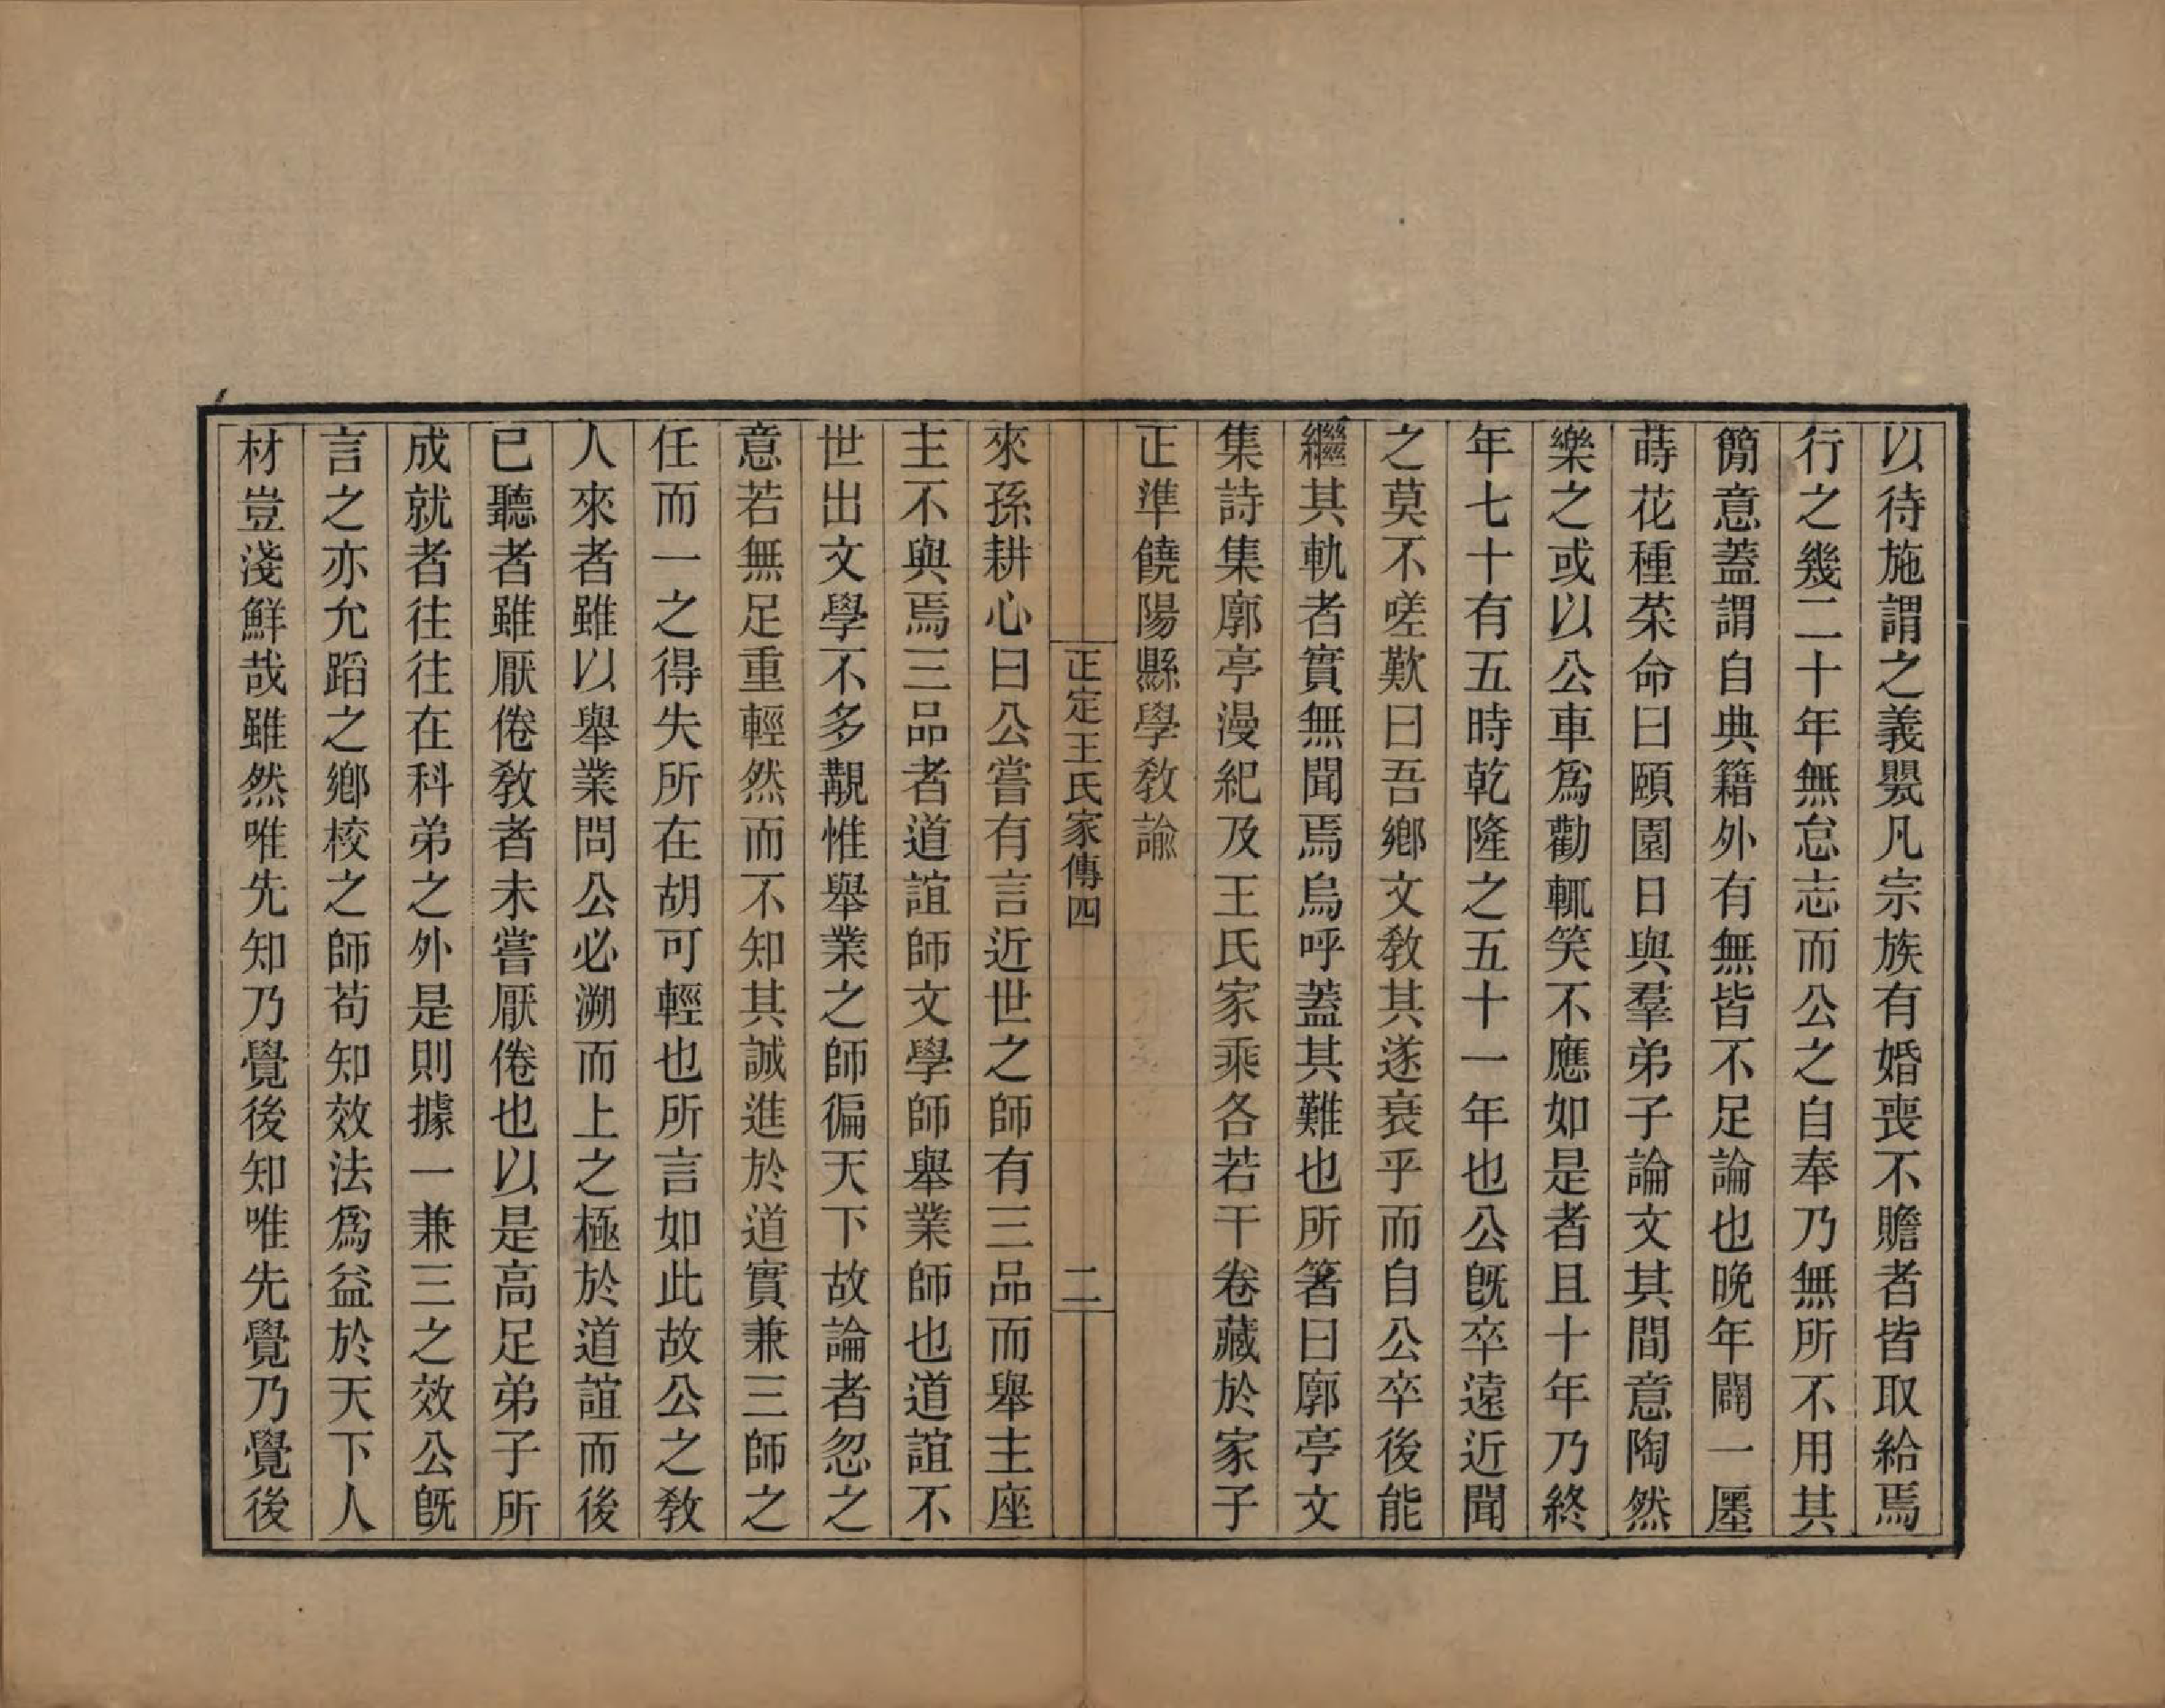 以待施謂之義甖凡宗族有婚喪不贍者皆取給焉
行之幾二十年無怠志而公之自奉乃無所不用其
簡意蓋謂自典籍外有無皆不足論也晚年闢一廛
蒔花種菜命曰頤園日與羣弟子論文其間意陶然
樂之或以公車爲勸輒笑不應如是者且十年乃終
年七十有五時乾隆之五十一年也公旣卒遠近聞
之莫不嗟歎曰吾鄉文敎其遂衰乎而自公卒後能
繼其軌者實無聞焉烏呼蓋其難也所箸曰廓亭文
集詩集廓亭漫紀及王氏家乘各若干卷藏於家子
正準饒陽縣學敎諭
正定王氏家傳四
二
來孫耕心曰公嘗有言近世之師有三品而舉主座
主不與焉三品者道誼師文學師舉業師也道誼不
世出文學不多覯惟舉業之師徧天下故論者忽之
意若無足重輕然而不知其誠進於道實兼三師之
任而一之得失所在胡可輕也所言如此故公之敎
人來者雖以舉業問公必溯而上之極於道誼而後
已聽者雖厭倦敎者未嘗厭倦也以是高足弟子所
成就者往往在科弟之外是則據一兼三之效公旣
言之亦允蹈之鄉校之師苟知效法爲益於天下人
材豈淺鮮哉雖然唯先知乃覺後知唯先覺乃覺後